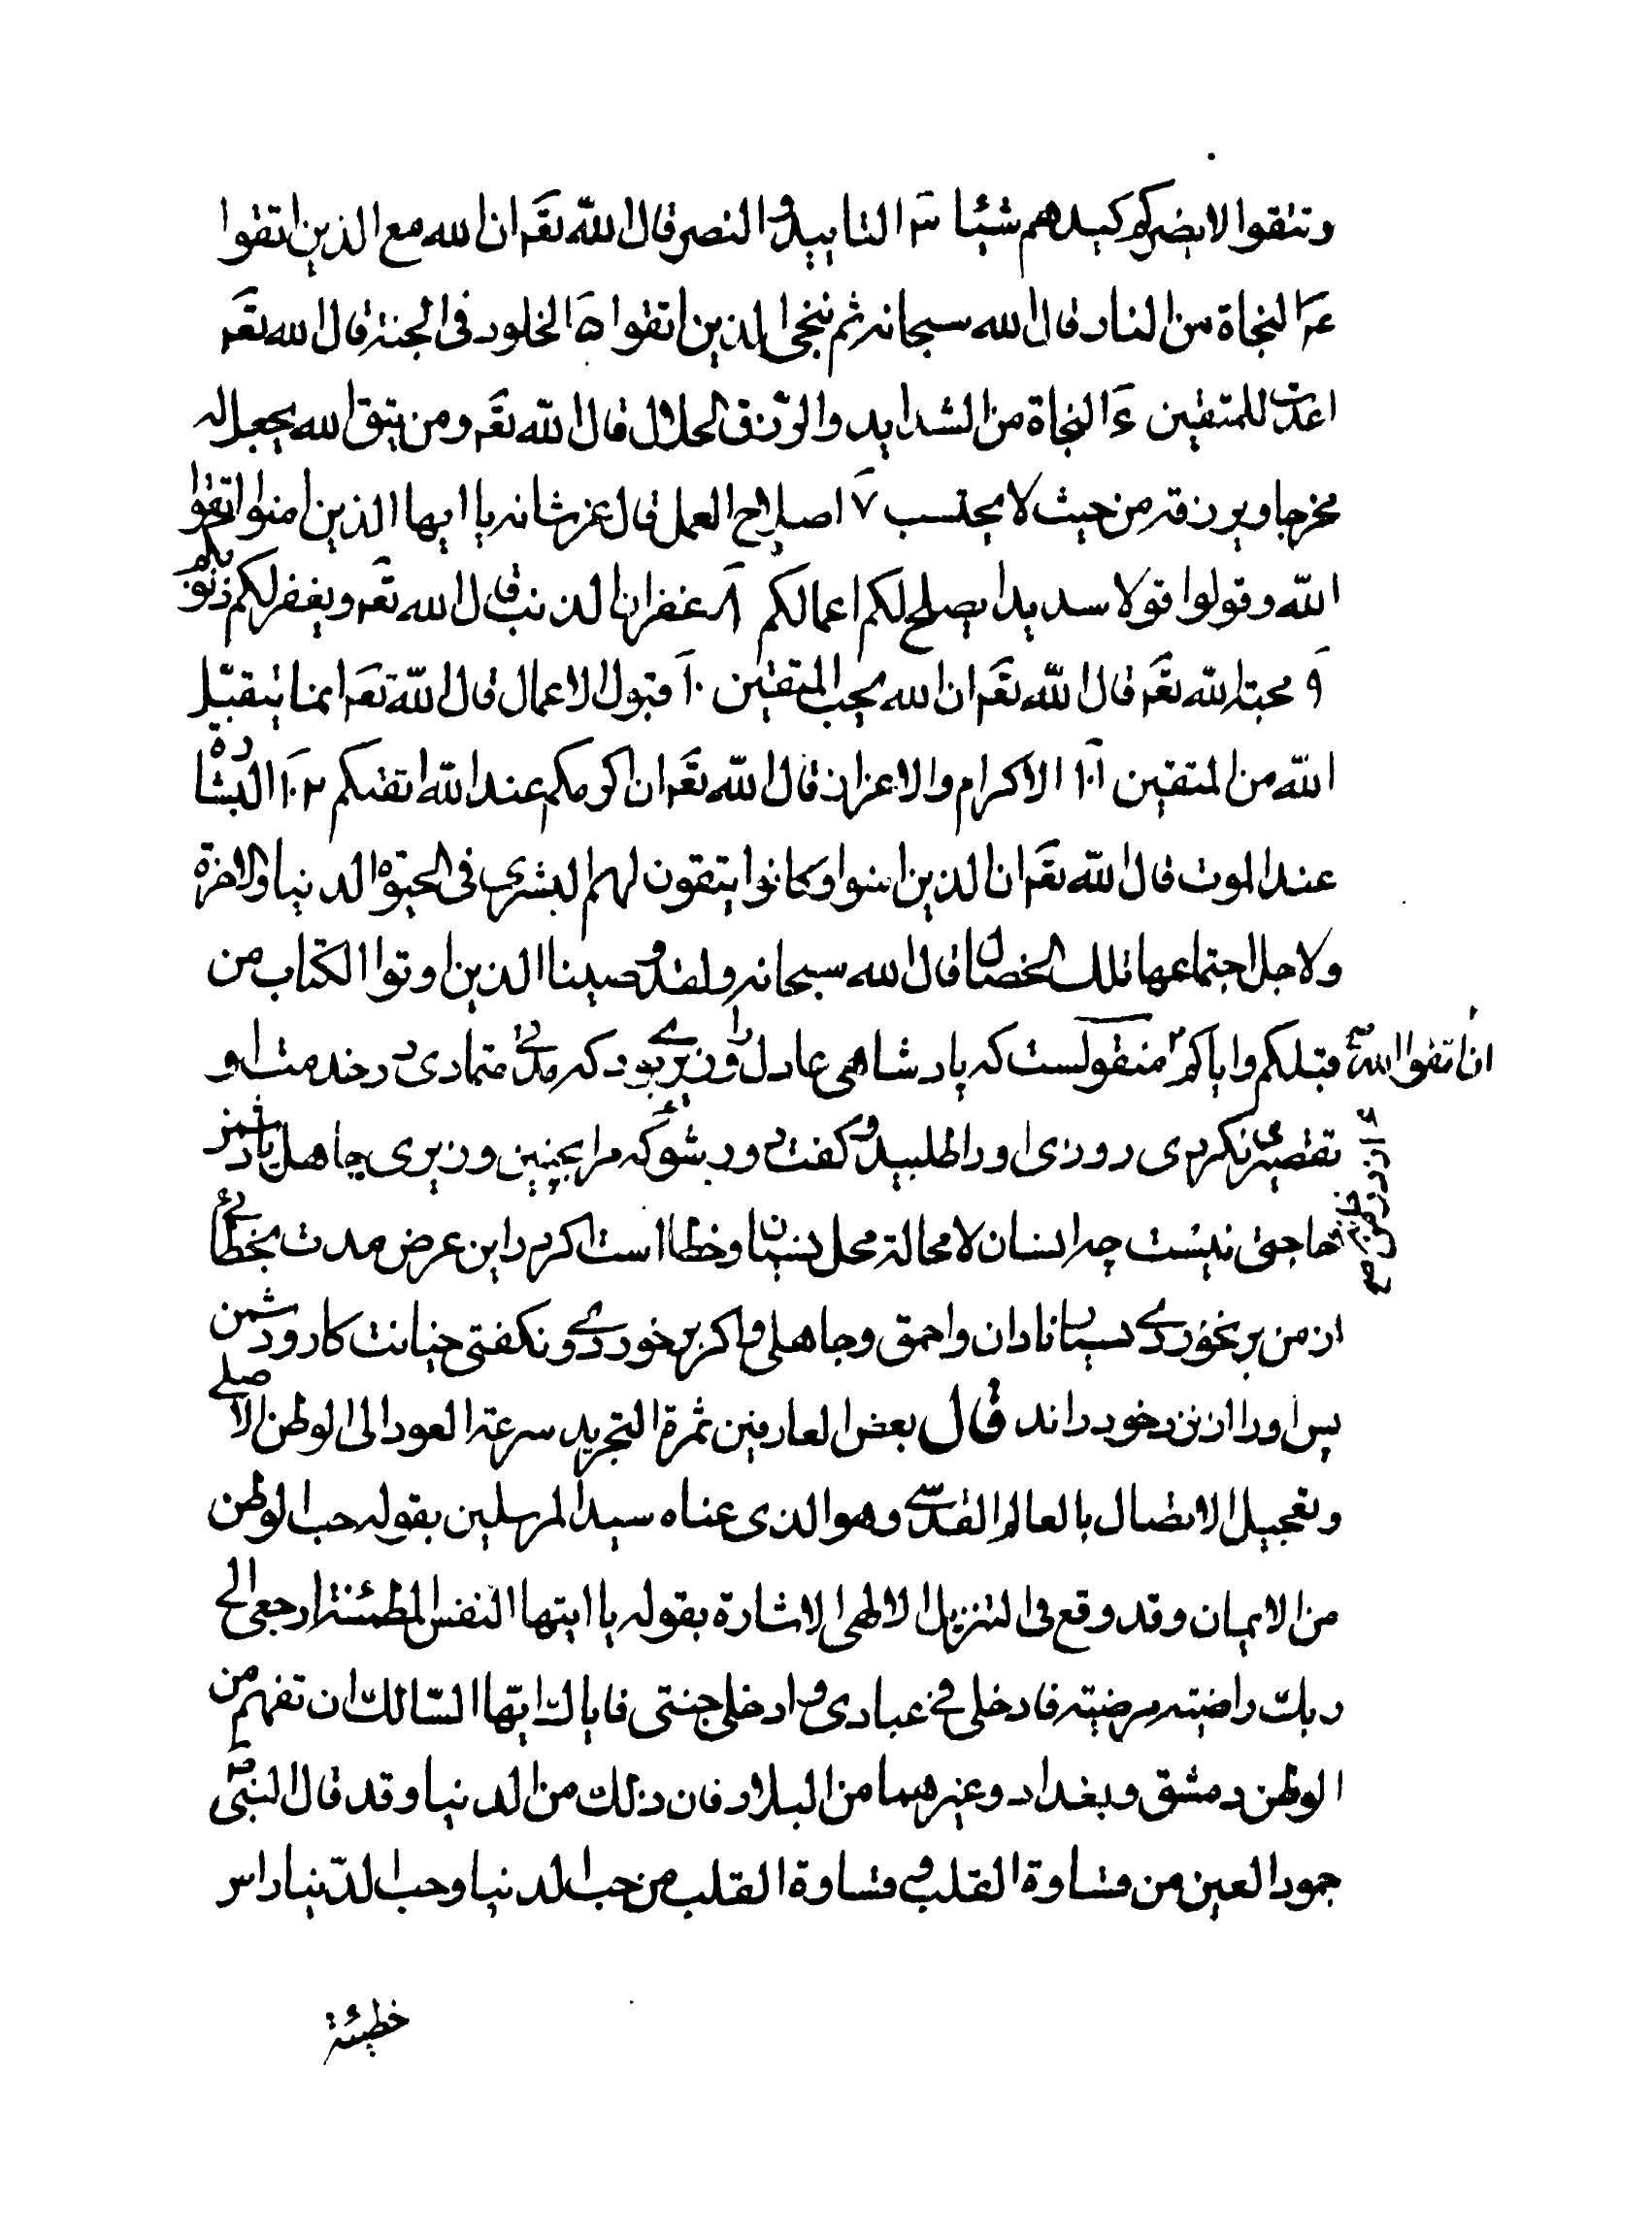 وتتقوا لا يضركم كيدهم شيئا ٣ التاييد والنصر قال الله تعه ان الله مع الذين اتقوا
عم النجاة من النار قال الله سبحانه ثم ننجى الذين اتقوا ۵ الخلود فى الجنة قال الله تعه
اعدت للمتقين ء النجاة من الشدايد والرزق الحلال قال الله تعه ومن يتق الله يجعل له
مخرجا ويرزقه من حيث لا يحتسب ٧ اصلاح العمل قال عز شانه يا ايها الذين امنوا اتقوا
الله وقولوا قولا سديدا يصلح لكم اعمالكم ٨ غفران الذنب قال الله تعه ويغفر لكم ذنوبكم
٩ محبة الله تعه قال الله تعه ان الله يحب المتقين ١٠ قبول الاعمال قال الله تعه انما يتقبل
الله من المتقين ١٠١ الاكرام والاعزاز قال الله تعه ان اكرمكم عند الله اتقىكم ١٠٢ البشارة
عند الموت قال الله تعه ان الذين امنوا وكانوا يتقون لهم البشرى فى الحيوة الدنيا والاخرة
ولاجل اجتماعها تلك الخصال قال الله سبحانه ولقد وصينا الذين اوتوا الكتاب من
قبلكم واياكم ان اتقوا الله صح منقولست كه پادشاهى عادل را وزيرے بود كه مدتى متمادى در خدمت او
تقصيرى نكردى روزى او را طلبيد و كفت دور شو كه مرا بچنين وزيرى جاهل يا دشمن
حاجتى نيست چه انسان لا محالة محل نسيان وخطا است اكر در اين عرض مدت بخطائے
از من بر نخوردے بسيار نادان و احمق و جاهلى و اكر بر خوردے و نكفتى خيانت كار و دشمن
پس او را از نزد خود راند قال بعض العارفين ثمرة التجريد سرعة العود الى الوطن الاصلے
وتعجيل الاتصال بالعالم القدسے وهو الذى عناه سيد المرسلين بقوله حب الوطن
من الايمان وقد وقع فى التنزيل الالهى الاشارة بقوله يا ايتها النفس المطمئنة ارجعى الى
ربك راضية مرضية فادخلى فى عبادى وادخلى جنتى فاياك ايها السالك ان تفهم من
الوطن دمشق وبغداد وغيرهما من البلاد فان ذلك من الدنيا وقد قال النبى ص
جمود العين من قساوة القلب و قساوة القلب من حب الدنيا وحب الدنيا راس
خطيئة